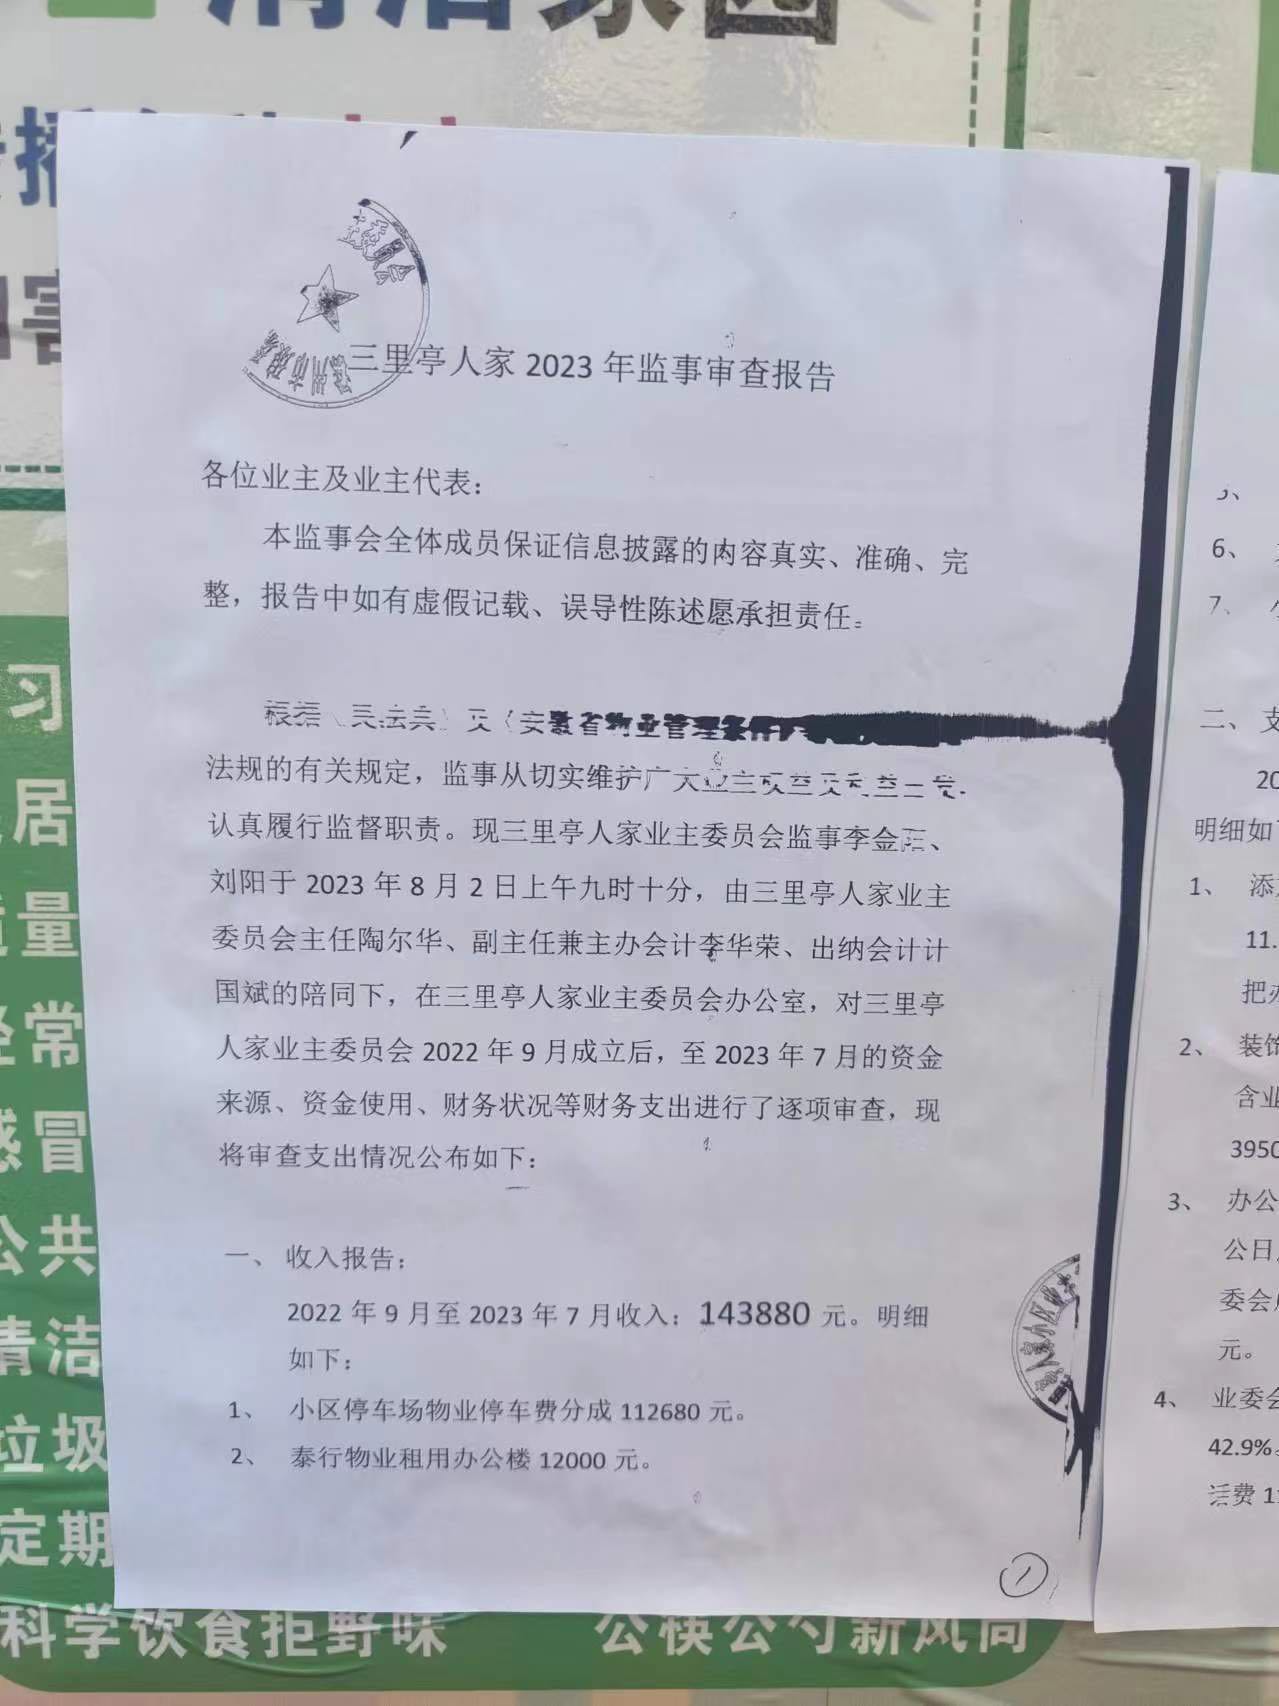 清洁家园
三里亭人家 2023 年监事审查报告
各位业主及业主代表：
本监事会全体成员保证信息披露的内容真实、准确、完
整，报告中如有虚假记载、误导性陈述愿承担责任。
根据《民法典》及《安徽省物业管理条例》
法规的有关规定，监事从切实维护广大业主权益及利益出发，
认真履行监督职责。现三里亭人家业主委员会监事李金阳、
刘阳于 2023 年 8 月 2 日上午九时十分，由三里亭人家业主
委员会主任陶尔华、副主任兼主办会计李华荣、出纳会计计
国斌的陪同下，在三里亭人家业主委员会办公室，对三里亭
人家业主委员会 2022 年 9 月成立后，至 2023 年 7 月的资金
来源、资金使用、财务状况等财务支出进行了逐项审查，现
将审查支出情况公布如下：
一、 收入报告：
2022 年 9 月至 2023 年 7 月收入：143880 元。明细
如下：
1、 小区停车场物业停车费分成 112680 元。
2、 泰行物业租用办公楼 12000 元。
1
6、
7、
二、 支
20
明细如下
1、 添
11.
把办
2、 装饰
含业
3950
3、 办公
公日
委会
元。
4、 业委会
42.9%
话费 1
习
居
量
经常
感冒
公共
清洁
垃圾
定期
科学饮食拒野味
公筷公勺新风尚